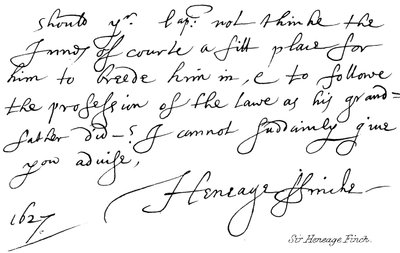 should yr. lap: not thinke the
Innes of courte a fitt place for
him to breede him in, & to followe
the profession of the lawe as his grand=
father did – I cannot suddainly give
you advise,
Heneage ffinche
1627
Sir Heneage Finch.